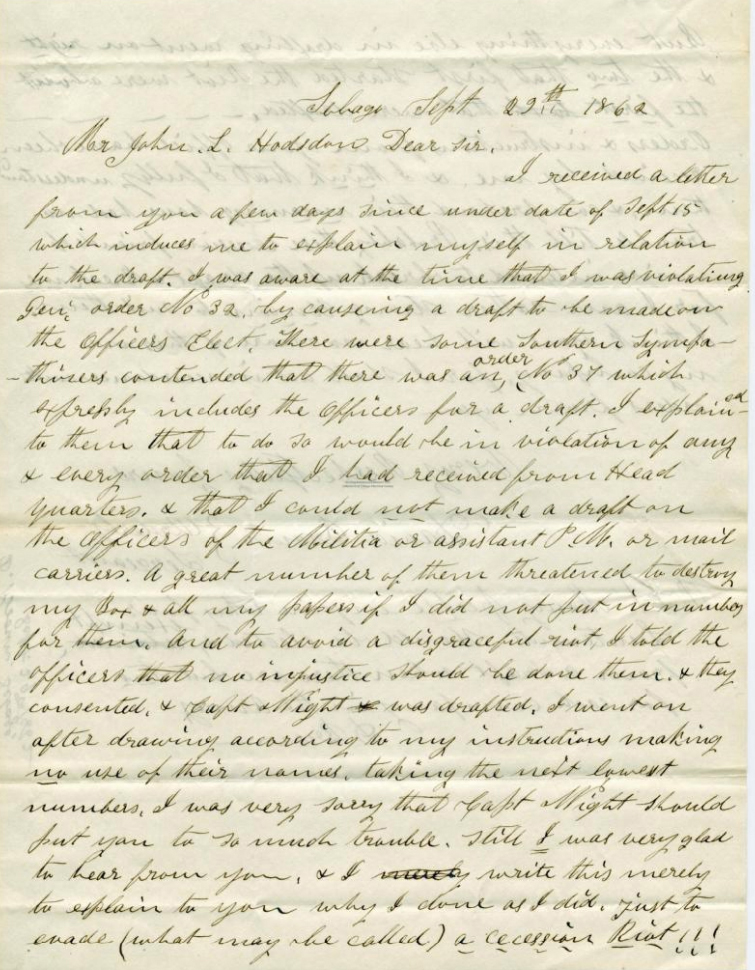 Sebago Sept 29th 1862
Mr John. L. Hodsdon Dear sir.
I received a letter
from you a few days since under date of Sept 15
which induces me to explain myself in relation
to the draft. I was aware at the time that I was violating
Gen. order No 32. by causeing a draft to be made on
the Officers Elect. There were some Southern Sympa-
-thisers contended that there was an, order No 37 which
expressly includes the Officers for a draft. I explained
to them that to do so would be in violation of any
& every order that I had received from Head
quarters. & that I could not make a draft on
the Officers of the Militia or assistant P.M. or mail
carriers. A great number of them threatened to destroy
my Box & all my papers if I did not put in number
for them. And to avoid a disgraceful riot, I told the
officers that no injustice should be done them. & they
consented. & Capt Night & was drafted. I went on
after drawing according to my instructions making
no use of their names. taking the next lowest
numbers. I was very sorry that Capt Night should
put you to so much trouble. still I was very glad
to hear from you. & I merely write this merely
to explain to you why I done as I did. just to
evade (what may be called) a cecession Riot !!!